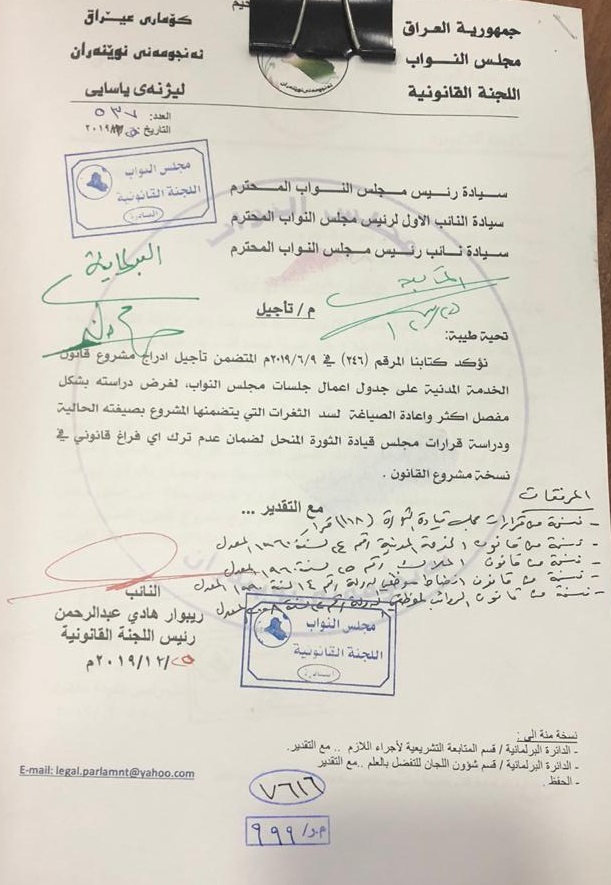 جمهورية العراق
مجلس النواب
اللجنة القانونية
كۆماری عیراق
ئەنجومەنی نوێنەران
لیژنەی یاسایی
العدد: ٥٣٧
التاريخ
مجلس النواب
اللجنة القانونية
الصادرة
سيادة رئيس مجلس النواب المحترم
سيادة النائب الاول لرئيس مجلس النواب المحترم
سيادة نائب رئيس مجلس النواب المحترم
م/ تأجيل
تحية طيبة:
نؤكد كتابنا المرقم (٢٤٦) في ٢٠١٩/٦/٩م المتضمن تأجيل ادراج مشروع قانون
الخدمة المدنية على جدول اعمال جلسات مجلس النواب، لغرض دراسته بشكل
مفصل اكثر واعادة الصياغة لسد الثغرات التي يتضمنها المشروع بصيغته الحالية
ودراسة قرارات مجلس قيادة الثورة المنحل لضمان عدم ترك اي فراغ قانوني في
نسخة مشروع القانون .
مع التقدير ...
المرفقات
- نسخة من قرارات مجلس قيادة الثورة (١١٨) قرار
- نسخة من قانون الخدمة المدنية رقم ٢٤ لسنة ١٩٦٠ المعدل
- نسخة من قانون الملاك رقم ٢٥ لسنة ١٩٦٠ المعدل
- نسخة من قانون انضباط موظفي الدولة رقم ١٤ لسنة المعدل
- نسخة من قانون الرواتب لموظفي الدولة رقم لسنة المعدل
النائب
ريبوار هادي عبدالرحمن
رئيس اللجنة القانونية
٢٠١٩/١٢/٥م
مجلس النواب
اللجنة القانونية
الصادرة
نسخة منه الى :
- الدائرة البرلمانية / قسم المتابعة التشريعية لأجراء اللازم .. مع التقدير.
- الدائرة البرلمانية / قسم شؤون اللجان للتفضل بالعلم ..مع التقدير
- الحفظ .
E-mail: legal.parlamnt@yahoo.com
٧٦١٦
م.د/ ٩٩٩